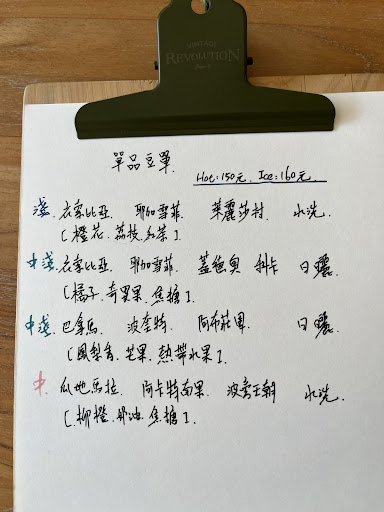 VINTAGE
REVOLUTION
單品豆單.
Hot:150元. Ice:160元.
淺. 衣索比亞. 耶加雪菲 萊麗莎村. 水洗.
[橙花. 荔枝. 紅茶].
中淺. 衣索比亞. 耶加雪菲. 蓋德奧 斜卡 日曬.
[橘子. 奇異果. 焦糖].
中淺. 巴拿馬. 波奎特. 阿布莊園. 日曬.
[鳳梨香. 芒果. 熱帶水果].
中. 瓜地馬拉. 阿卡特南果. 波旁王朝 水洗.
[柳橙. 奶油. 焦糖].